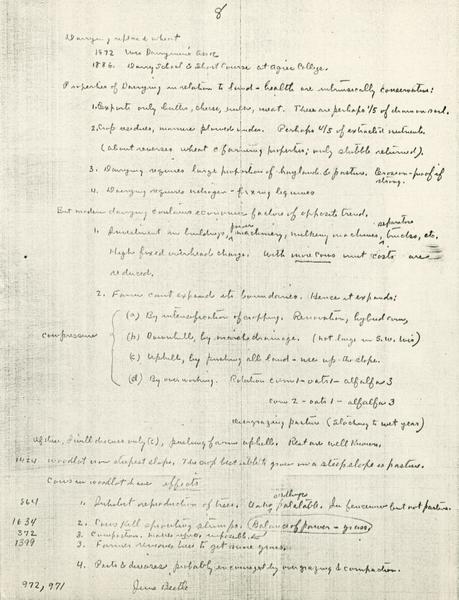 8
Dairying replaced wheat
1872 Wis Dairymen's Assn
1886. Dairy School & Short Course at Agric College.
Properties of Dairying in relation to land-health are intrinsically conservative:
1. Exports only butter, cheese, milk, meat. These are perhaps 1/5 of drain on soil.
2. Crop residues, manure plowed under. Perhaps 4/5 of extracted nutrients
(about reverses wheat farming properties; only stubble returned).
3. Dairying requires large proportion of haylands & pasture. Erosion-proof if strong.
4. Dairying requires nitrogen-fixing legumes
But modern dairying contains economic factors of opposite trend.
1. Investment in buildings, power machinery, milking machines, separators trucks, etc.
High fixed overhead charge. With more cows unit costs are
reduced.
2. Farm can't expand its boundaries. Hence it expands:
(a) By intensification of cropping. Renovation, hybrid corn,
compressure
(b) Downhill, by marsh drainage. (not large in S.W. Wis)
(c) Uphill, by pushing all land-uses up the slope.
(d) By overworking. Rotation corn 1 - oats 1 - alfalfa 3
corn 2 - oats 1 - alfalfa 3
Overgrazing pasture (Stocking to wet year)
Of these, I will discuss only (c), pushing farms uphill. Rest are well known.
1424 Woodlot now steepest slope. The crop best able to grow on a steep slope is pasture.
Cows in woodlot have effects
864 1. Inhibit reproduction of trees. Oaks seedlings palatable. In fencerow but not pasture.
1634 2. Cows kill sprouting stumps. (Balance of power - grass)
372 3. Compaction. makes
1399 3. Farmer removes trees to get more grass.
4. Pests & diseases probably encouraged by overgrazing & compaction.
972, 971 June Beetle